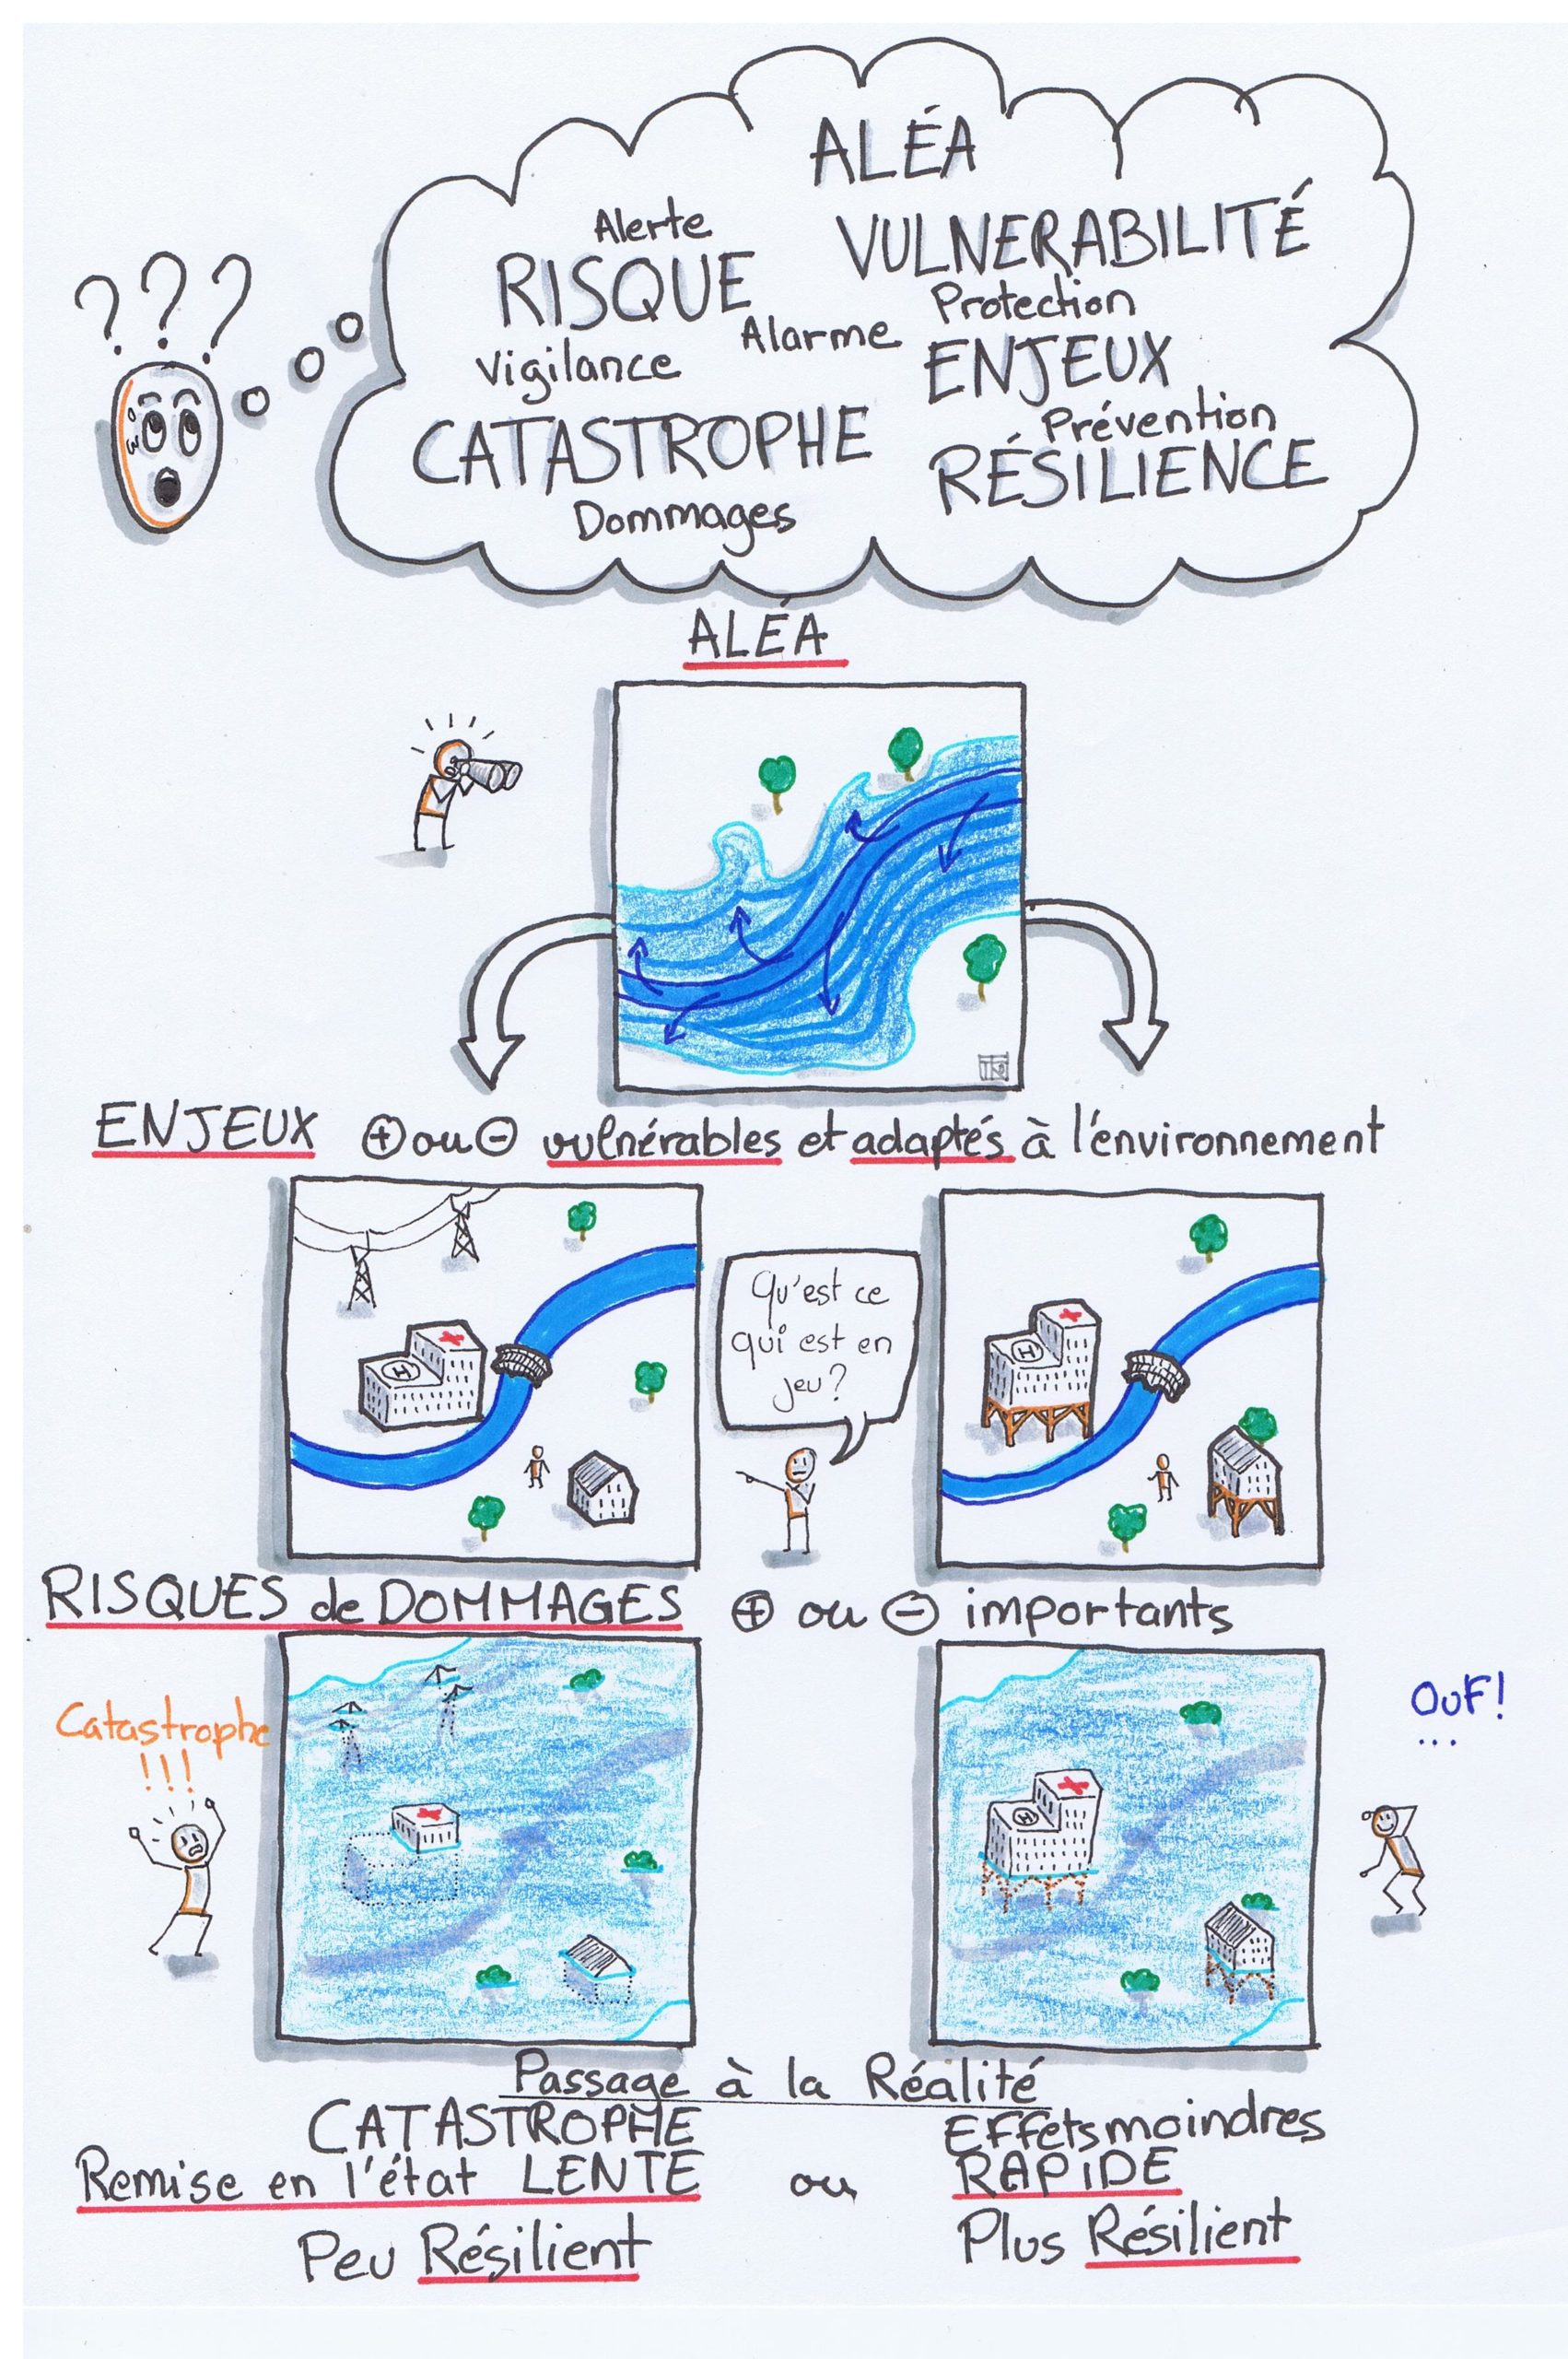 ???
ALÉA
Alerte
VULNERABILITÉ
RISQUE
Protection
Alarme
Vigilance
ENJEUX
Prévention
CATASTROPHE
RÉSILIENCE
Dommages
ALÉA
ENJEUX + ou - vulnérables et adaptés à l'environnement
Qu'est ce
qui est en
jeu?
H
H
RISQUES de DOMMAGES + ou - importants
Catastrophe
!!!
OUF!
...
H
Passage à la Réalité
CATASTROPHE
Effets moindres
Remise en l'état LENTE ou RAPIDE
Peu Résilient
Plus Résilient